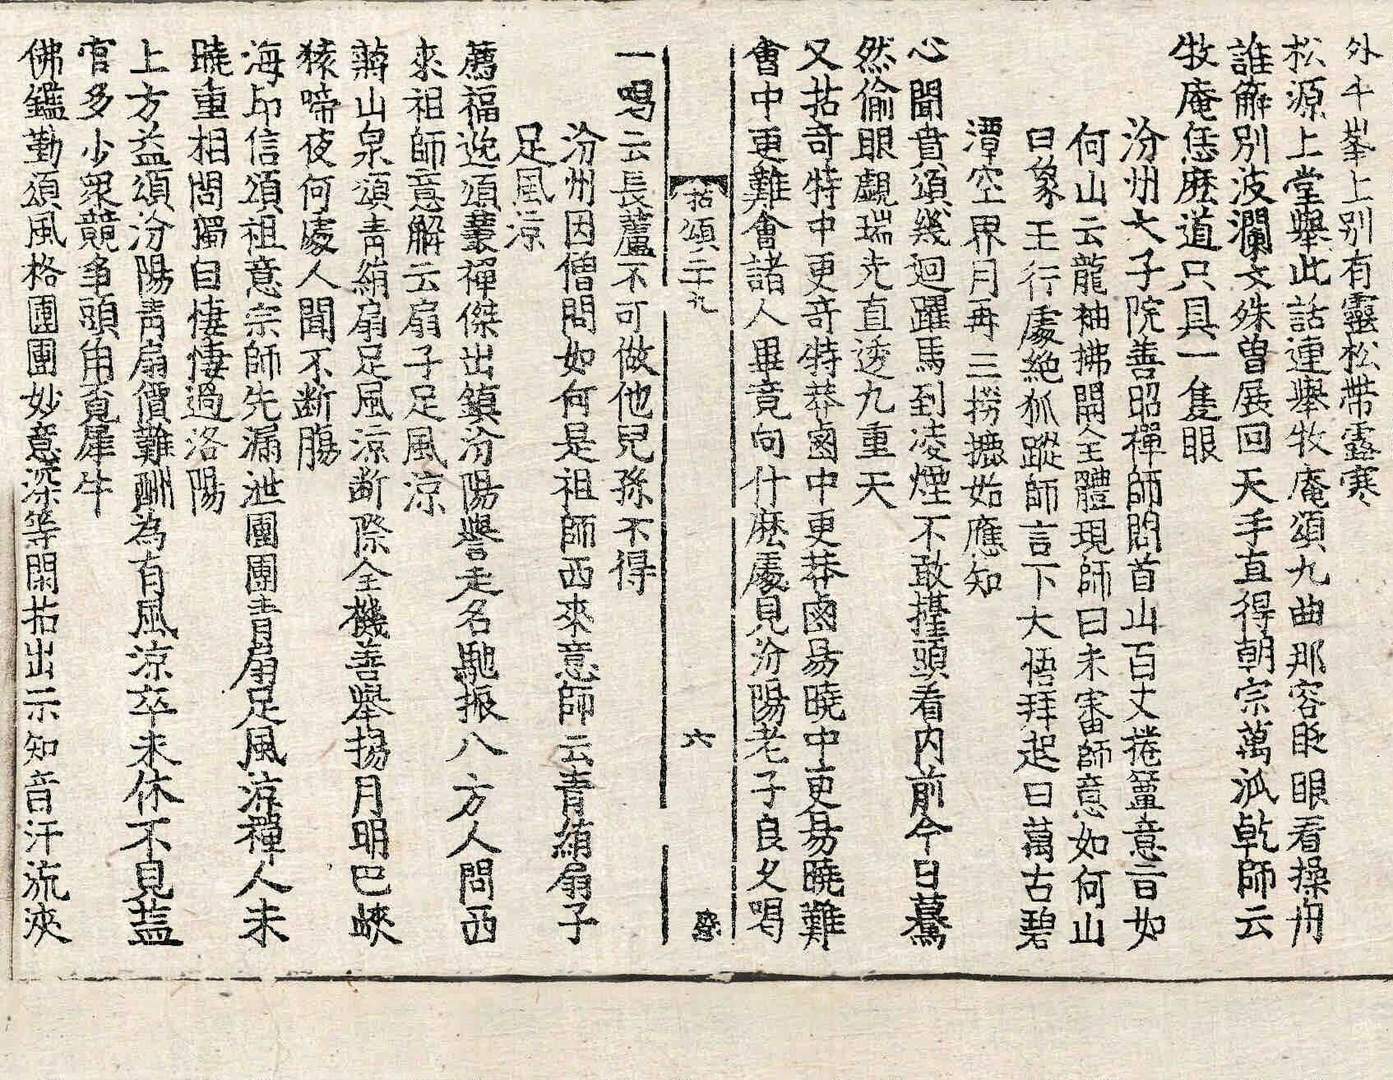 外千峯上別有靈松帶露寒
松源上堂舉此話連舉牧庵頌九曲那容眨眼看操舟
誰解別波瀾文殊曾展回天手直得朝宗萬派乹師云
牧庵恁麽道只具一隻眼
汾州大子院善昭禪師問首山百丈捲簟意旨如
何山云龍袖拂開全體現師曰未審師意如何山
曰象王行處絶狐蹤師言下大悟拜起曰萬古碧
潭空界月再三撈摝始應知
心聞賁頌幾迴躍馬到凌煙不敢擡頭看內前今日驀
然偷眼覷瑞光直透九重天
又拈奇特中更奇特莽鹵中更莽鹵昜曉中更昜曉難
會中更難會諸人畢竟向什麽處見汾陽老子良久喝
拈頌二十九
六
一喝云長蘆不可做他兒孫不得
汾州因僧問如何是祖師西來意師云青絹扇子
足風涼
薦福逸頌叢禪傑出鎮汾陽譽走名馳振八方人問西
來祖師意解云扇子足風涼
蔣山泉頌青絹扇足風涼断際全機善舉揚月明巴峽
猿啼夜何處人聞不断腸
海印信頌祖意宗師先漏泄團團青扇足風涼禪人未
曉重相問獨自悽悽過洛陽
上方益頌汾陽青扇價難酬為有風涼卒未休不見益
官多少衆競爭頭角覔犀牛
佛鑑勤頌風格團團妙意深等閑拈出示知音汗流浹